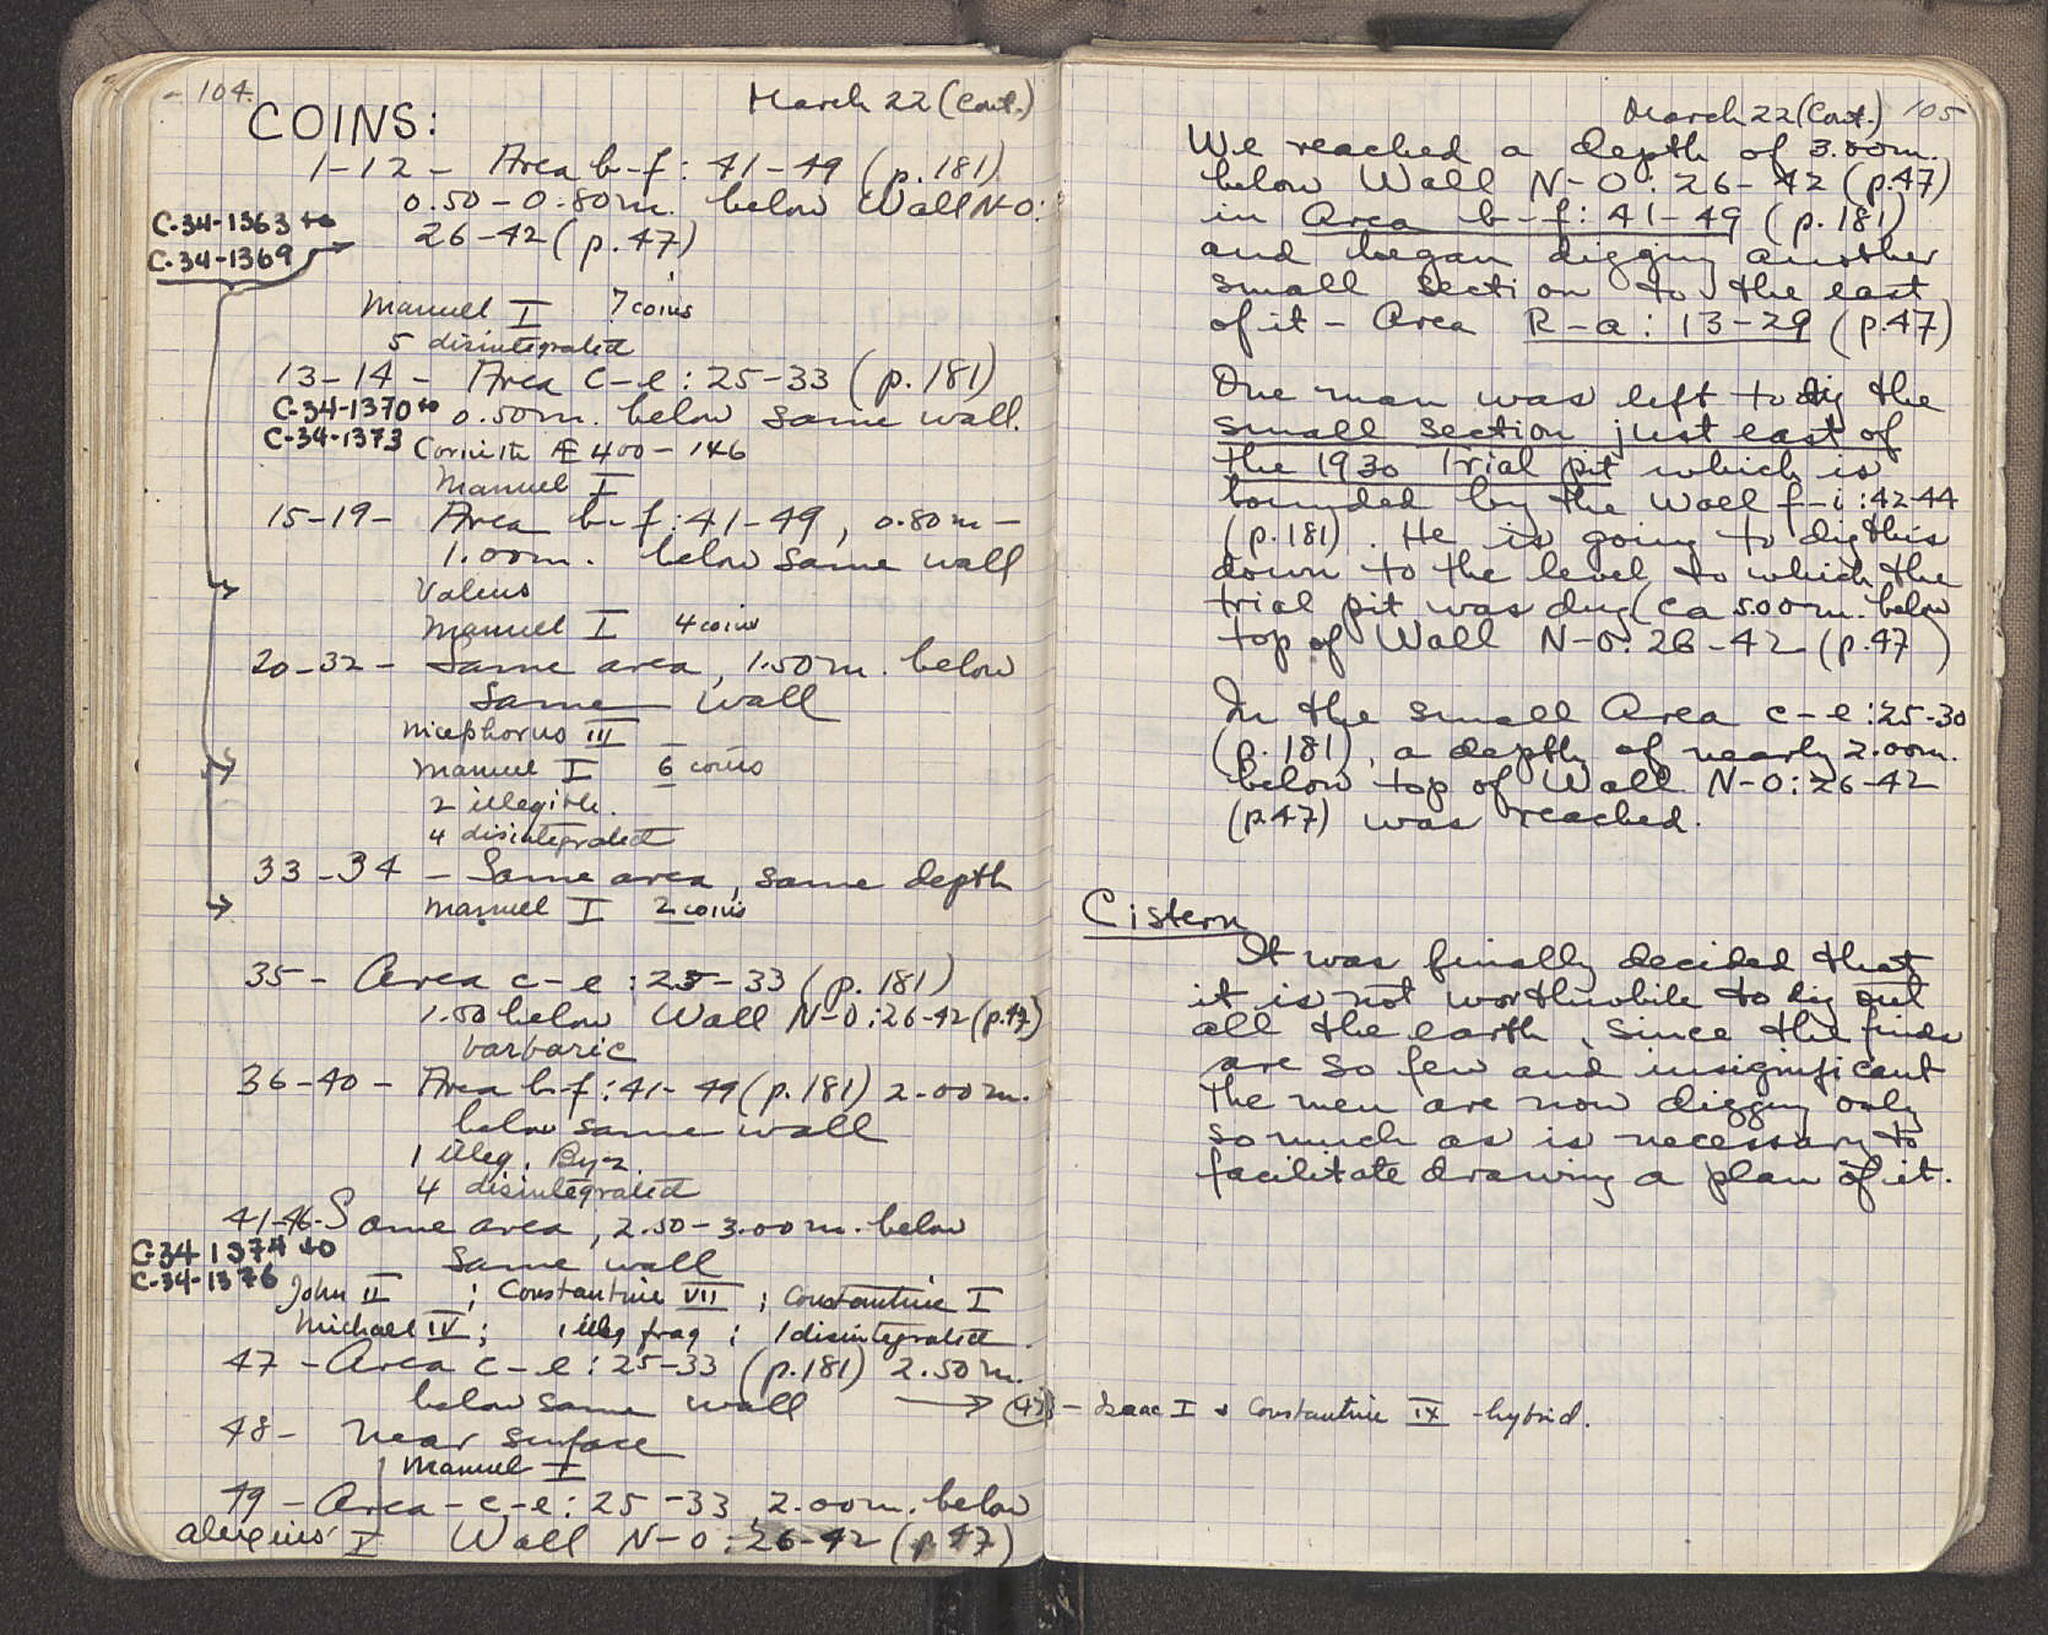 104.
March 22 (Cont.)
COINS:
1-12 - Area b-f: 41-49 (p. 181)
0.50-0.80m. below Wall N-O:
C-34-1363 to
C-34-1369
26-42 (p. 47)
Manuel I 7 coins
5 disintegrated
13-14 - Area c-e: 25-33 (p. 181)
C-34-1370 to
C-34-1373
0.50m. below same wall.
Corinth Æ 400-146
Manuel I
15-19- Area b-f: 41-49, 0.80m-
1.00m. below same wall
Valens
Manuel I 4 coins
20-32- Same area, 1.50m. below
same wall
Nicephorus III
Manuel I 6 coins
2 illegible.
4 disintegrated
33-34 - Same area, same depth
Manuel I 2 coins
35 - Area c-e: 25-33 (p. 181)
1.00 below Wall N-O: 26-42 (p. 47)
barbaric
36-40 - Area b-f: 41-49 (p. 181) 2.00m.
below same wall
1 illeg. Byz.
4 disintegrated
41-46- Same area, 2.50-3.00m. below
same wall
C-34 1374 to
C-34-1376
John II ; Constantine VII ; Constantine I
Michael IV ; 1 illeg frag ; 1 disintegrated.
47 - Area c-e: 25-33 (p. 181) 2.50m.
below same wall → 47 - Isaac I & Constantine IX - hybrid.
48 - Near surface
Manuel I
49 - Area - c-e: 25-33, 2.00m. below
Alexius I Wall N-O: 26-42 (p 47)
March 22 (Cont.) 105
We reached a depth of 3.00m.
below Wall N-O: 26-42 (p. 47)
in Area b-f: 41-49 (p. 181)
and began digging another
small section to the east
of it - Area R-a: 13-29 (p. 47)
One man was left to dig the
small section just east of
the 1930 trial pit which is
bounded by the Wall f-i: 42-44
(p. 181). He is going to dig this
down to the level to which the
trial pit was dug (ca 5.00m. below
top of Wall N-O: 26-42 (p. 47)
In the small Area c-e: 25-30
(p. 181), a depth of nearly 2.00m.
below top of Wall N-O: 26-42
(p 47) was reached.
Cistern
It was finally decided that
it is not worthwhile to dig out
all the earth, since the finds
are so few and insignificant
The men are now digging only
so much as is necessary to
facilitate drawing a plan of it.